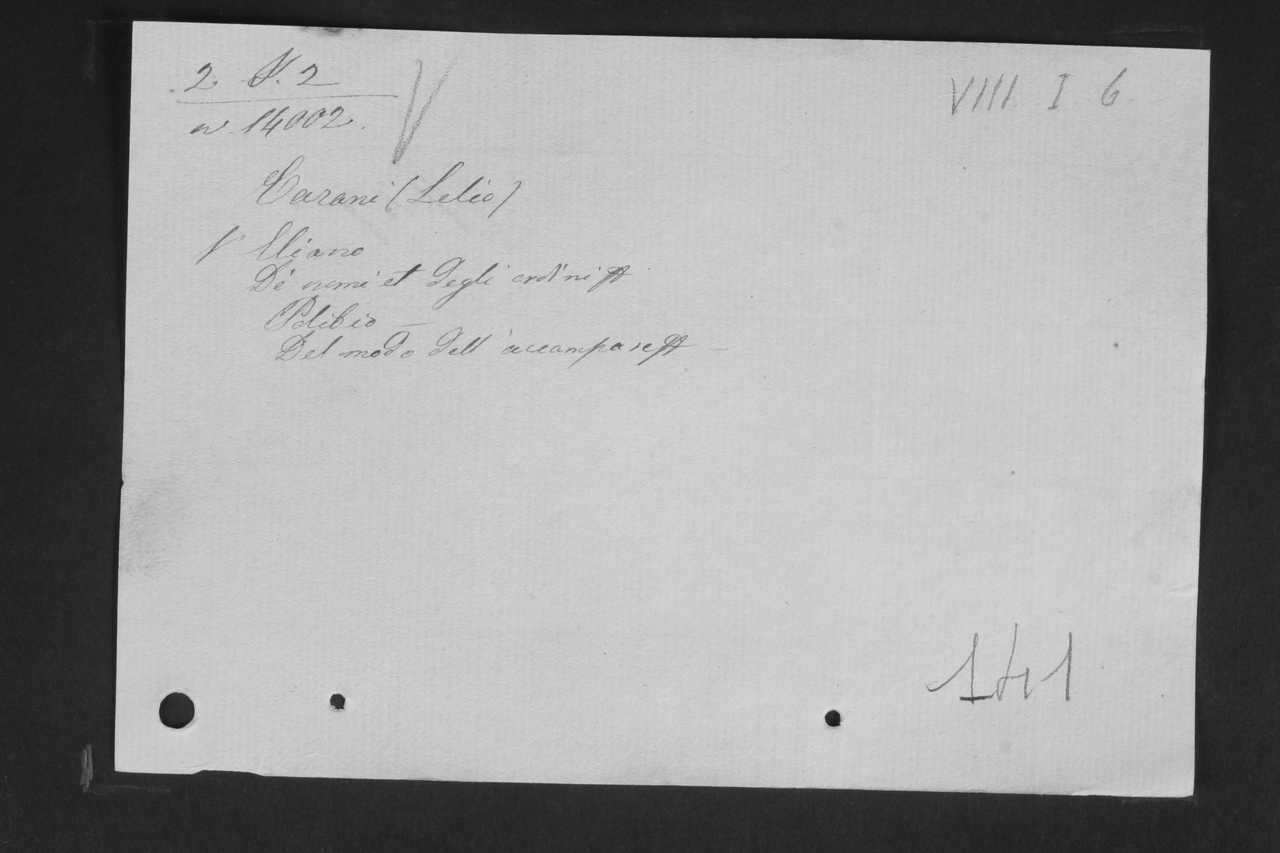 2 S. 2
VIII I 6
n. 14002.
V
Carani (Lelio)
V Eliano
De' nomi et degli ordini
Polibio —
Del modo dell'accampare —
141